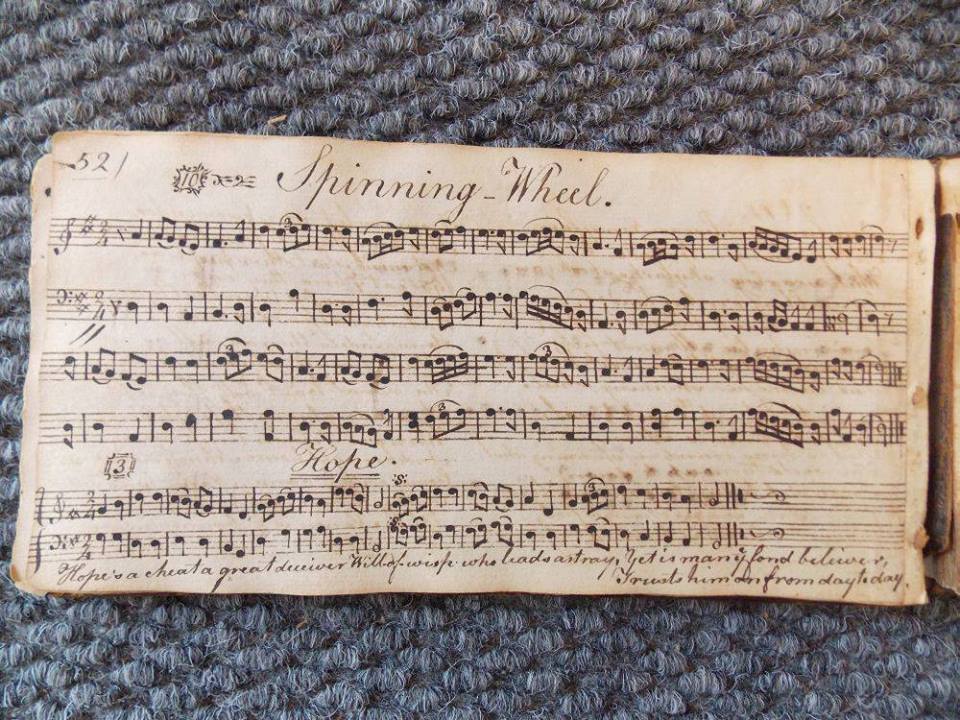 52/
Spinning-Wheel.
Hope.
3
Hope's a cheat a great deceiver Will of wisp who leads astray, Yet is many fond believer,
Trusts him on from day to day.